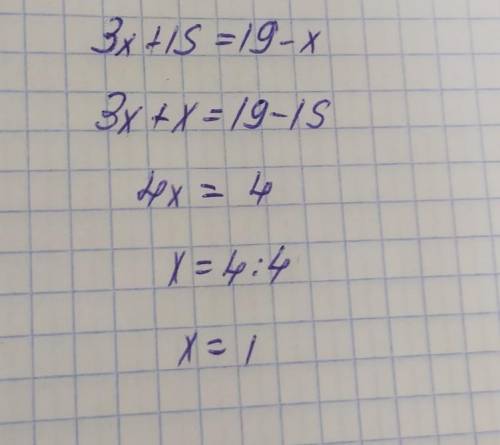 3x+15=19-x
3x+x=19-15
4x=4
x=4:4
x=1